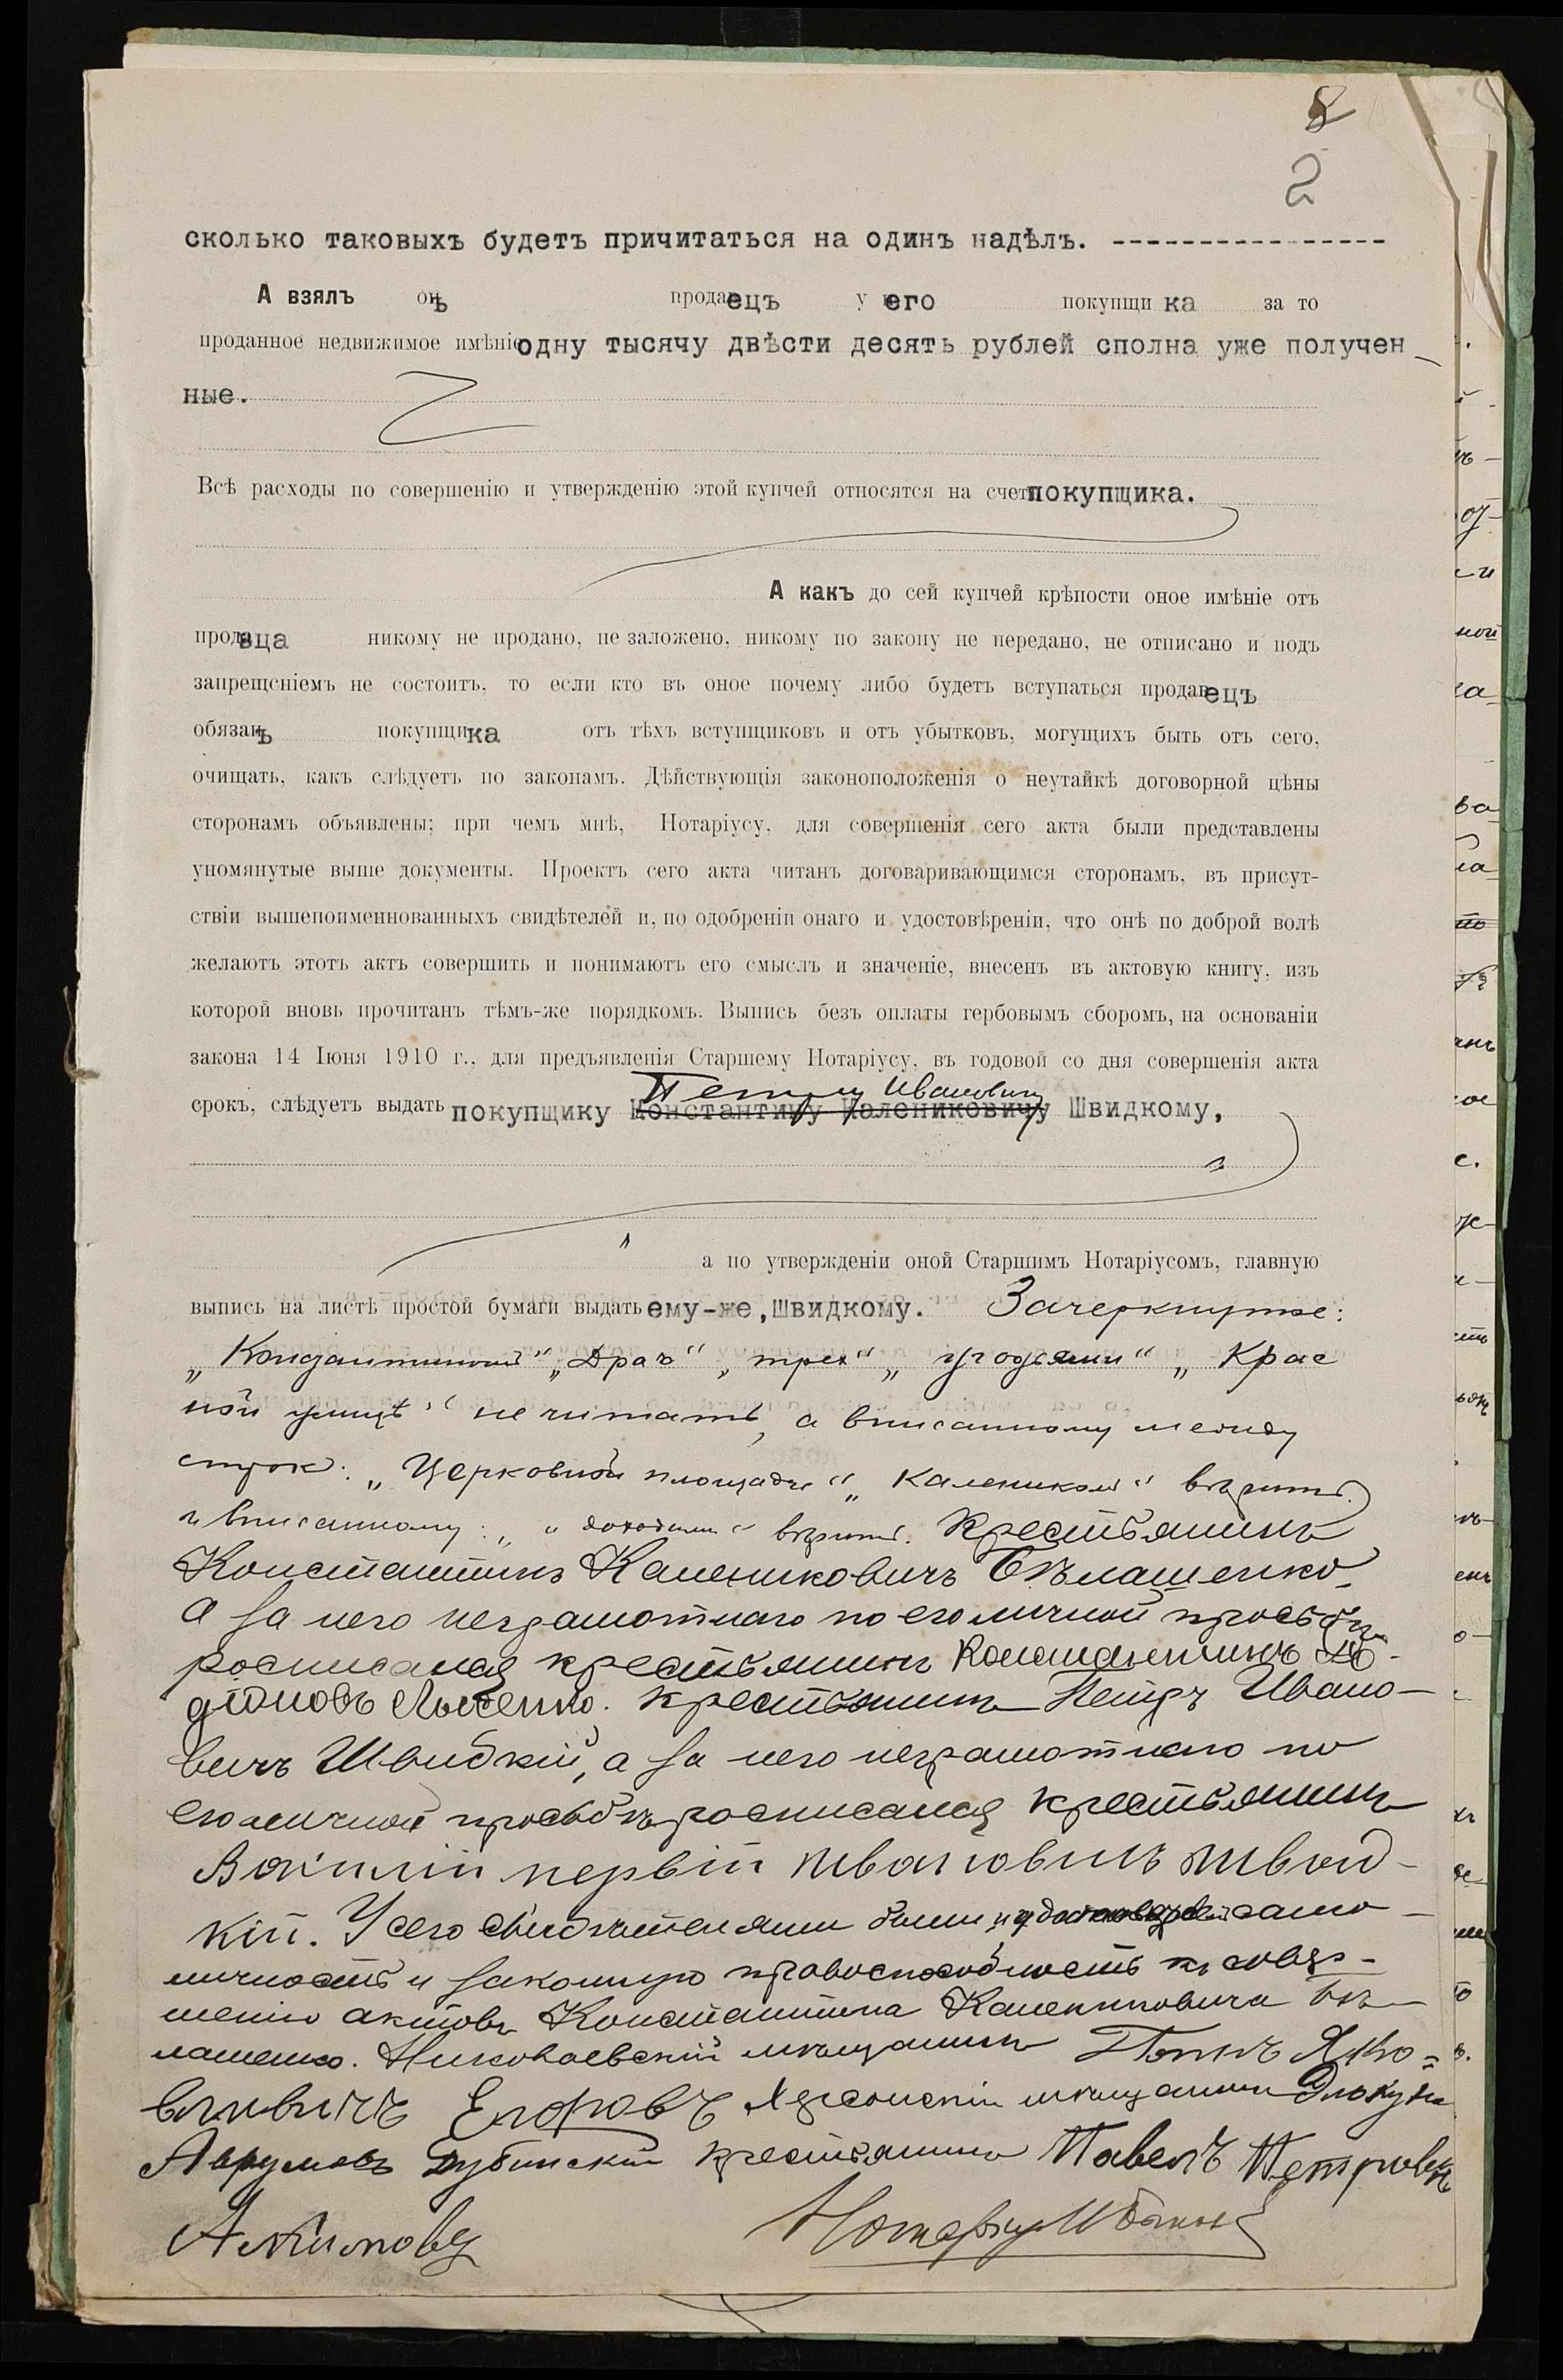 8
2
сколько таковыхъ будетъ причитаться на одинъ надѣлъ. ----------------
А взялъ онъ продавецъ у него покупщика за то
проданное недвижимое имѣніе одну тысячу двѣсти десять рублей сполна уже получен-
ные.
Всѣ расходы по совершенію и утвержденію этой купчей относятся на счетъ покупщика.
А какъ до сей купчей крѣпости оное имѣніе отъ
продавца никому не продано, не заложено, никому по закону не передано, не отписано и подъ
запрещеніемъ не состоитъ, то если кто въ оное почему либо будетъ вступаться продавецъ
обязанъ покупщика отъ тѣхъ вступщиковъ и отъ убытковъ, могущихъ быть отъ сего,
очищать, какъ слѣдуетъ по законамъ. Дѣйствующія законоположенія о неутайкѣ договорной цѣны
сторонамъ объявлены; при чемъ мнѣ, Нотаріусу, для совершенія сего акта были представлены
упомянутые выше документы. Проектъ сего акта читанъ договаривающимся сторонамъ, въ присут-
ствіи вышепоименнованныхъ свидѣтелей и, по одобреніи онаго и удостовѣреніи, что онѣ по доброй волѣ
желаютъ этотъ актъ совершить и понимаютъ его смыслъ и значеніе, внесенъ въ актовую книгу, изъ
которой вновь прочитанъ тѣмъ-же порядкомъ. Выпись безъ оплаты гербовымъ сборомъ, на основаніи
закона 14 Іюня 1910 г., для предъявленія Старшему Нотаріусу, въ годовой со дня совершенія акта
Петру Ивановичу
срокъ, слѣдуетъ выдать покупщику Константину Калениковичу Швидкому,
а по утвержденіи оной Старшимъ Нотаріусомъ, главную
выпись на листѣ простой бумаги выдать ему-же, Швидкому. Зачеркнутое:
„ „ трех“ „ угодьями“ „ Крас
ной улицѣ“ не читать, а вписанному между
строк: „Церковной площади“ „ Калеников“ вѣрить.
и вписанному: „ вѣрить. Крестьянинъ
Константинъ Калениковичъ Бѣлашенко,
а за него неграмотнаго по его личной просьбѣ
росписался крестьянинъ Константинъ
Лысенко. крестьянинъ Петръ Ивано-
вичъ Швидкій, а за него неграмотнаго по
его личной просьбѣ росписался крестьянинъ
Василій первій Ивановичъ Швид-
кій. У сего свидѣтелями были и само-
личность и законную правоспособность къ совер-
шенію актовъ Константина Калениковича Бѣ-
лашенко. Николаевскій мѣщанинъ Яко=
влевичъ Егоровъ Херсонскій мѣщанинъ
Аврумовъ Дубинскій крестьянинъ Павелъ Петровичъ
Акимовъ Нотаріусъ